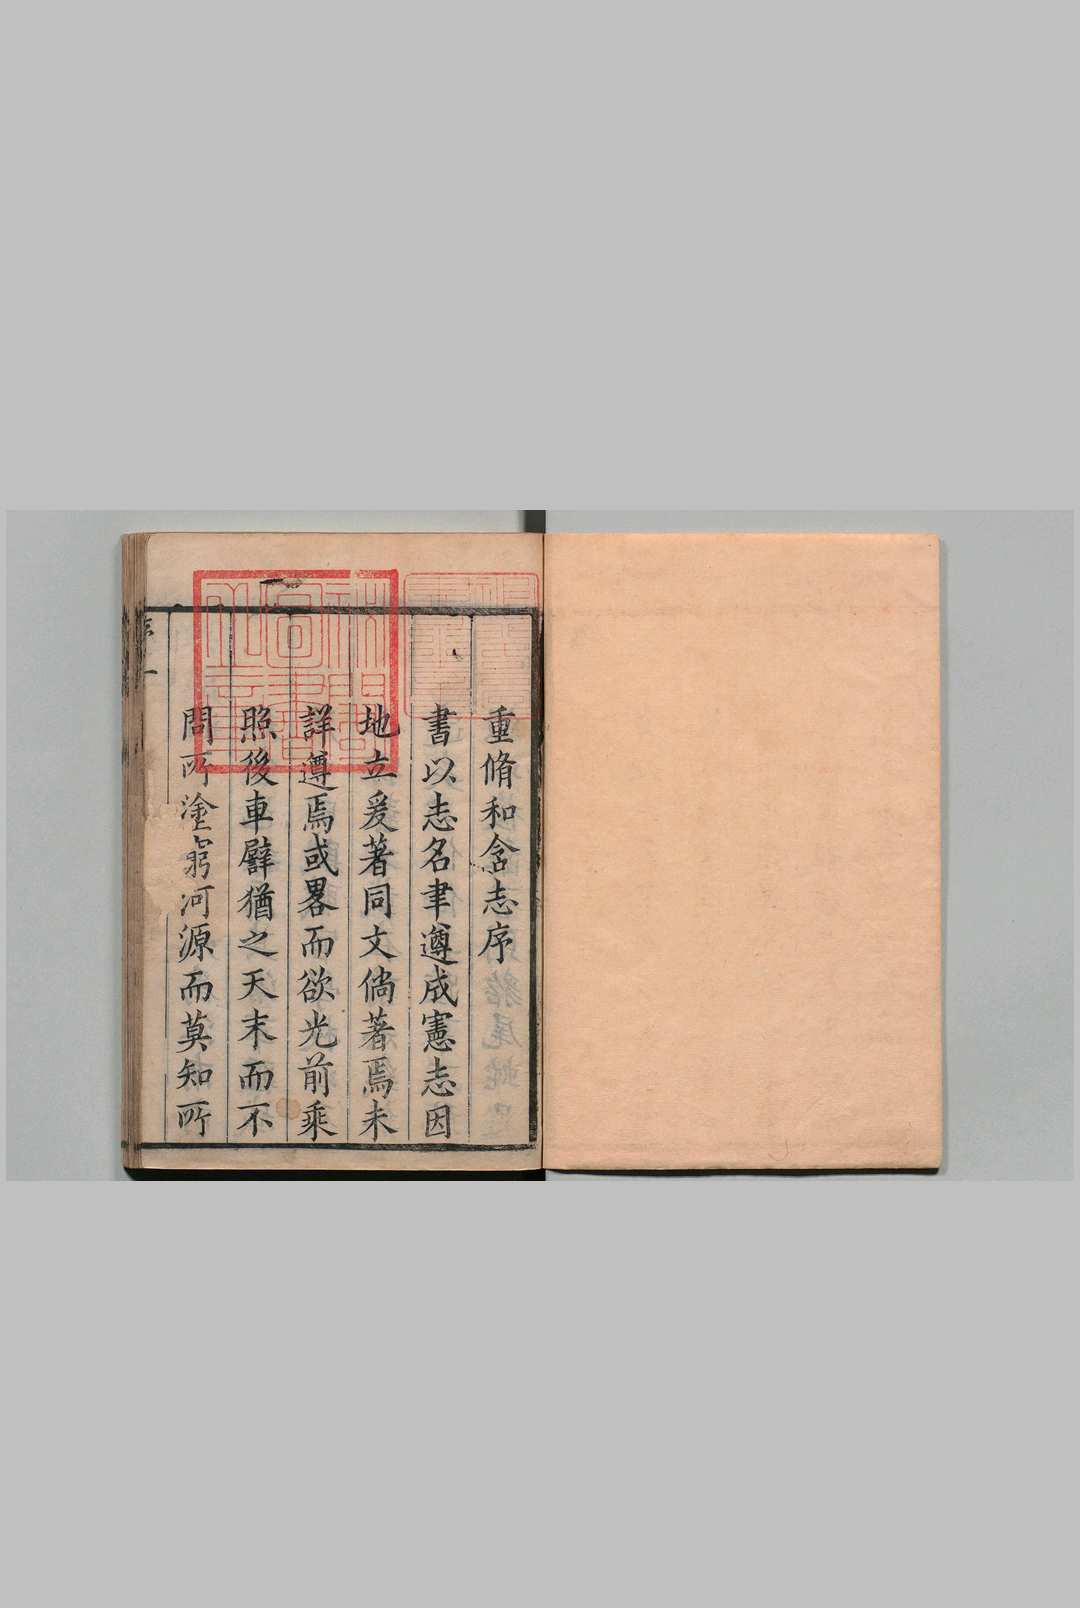 重脩和含志序
書以志名聿遵成憲志因
地立爰著同文倘著焉未
詳遵焉或畧而欲光前乘
照後車譬猶之天末而不
問所塗窮河源而莫知所